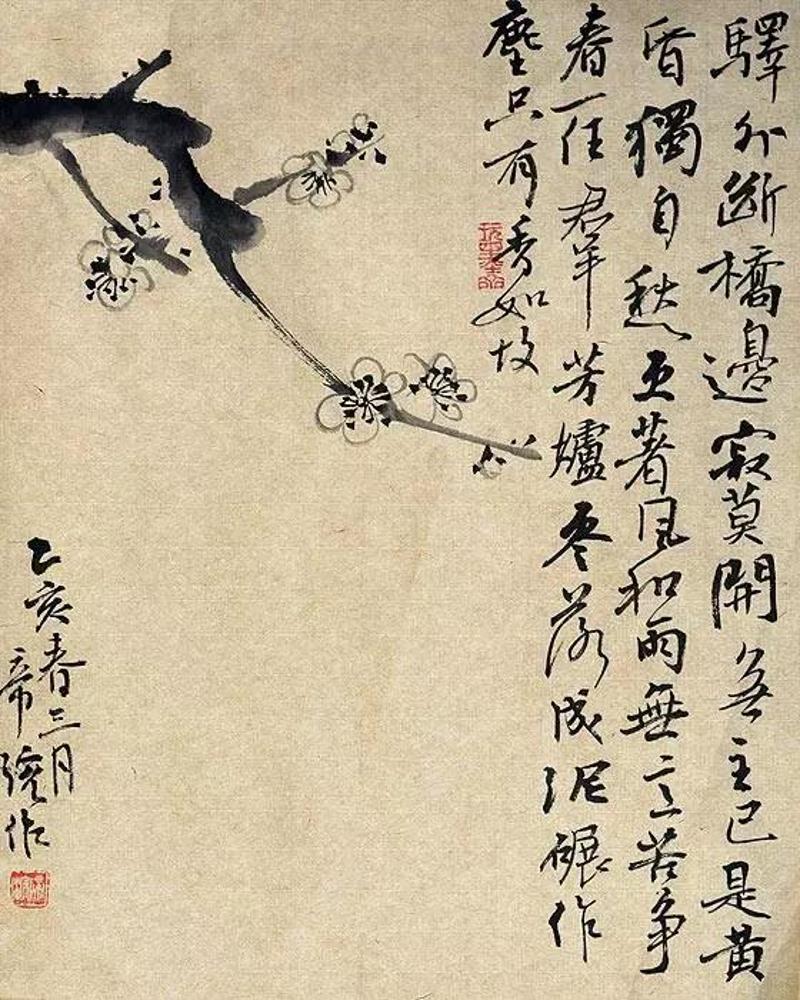 驛外斷橋邊寂莫開無主已是黃
昏獨自愁更著風和雨無意苦爭
春一任群芳爐零落成泥碾作
塵只有香如故
乙亥春三月
作